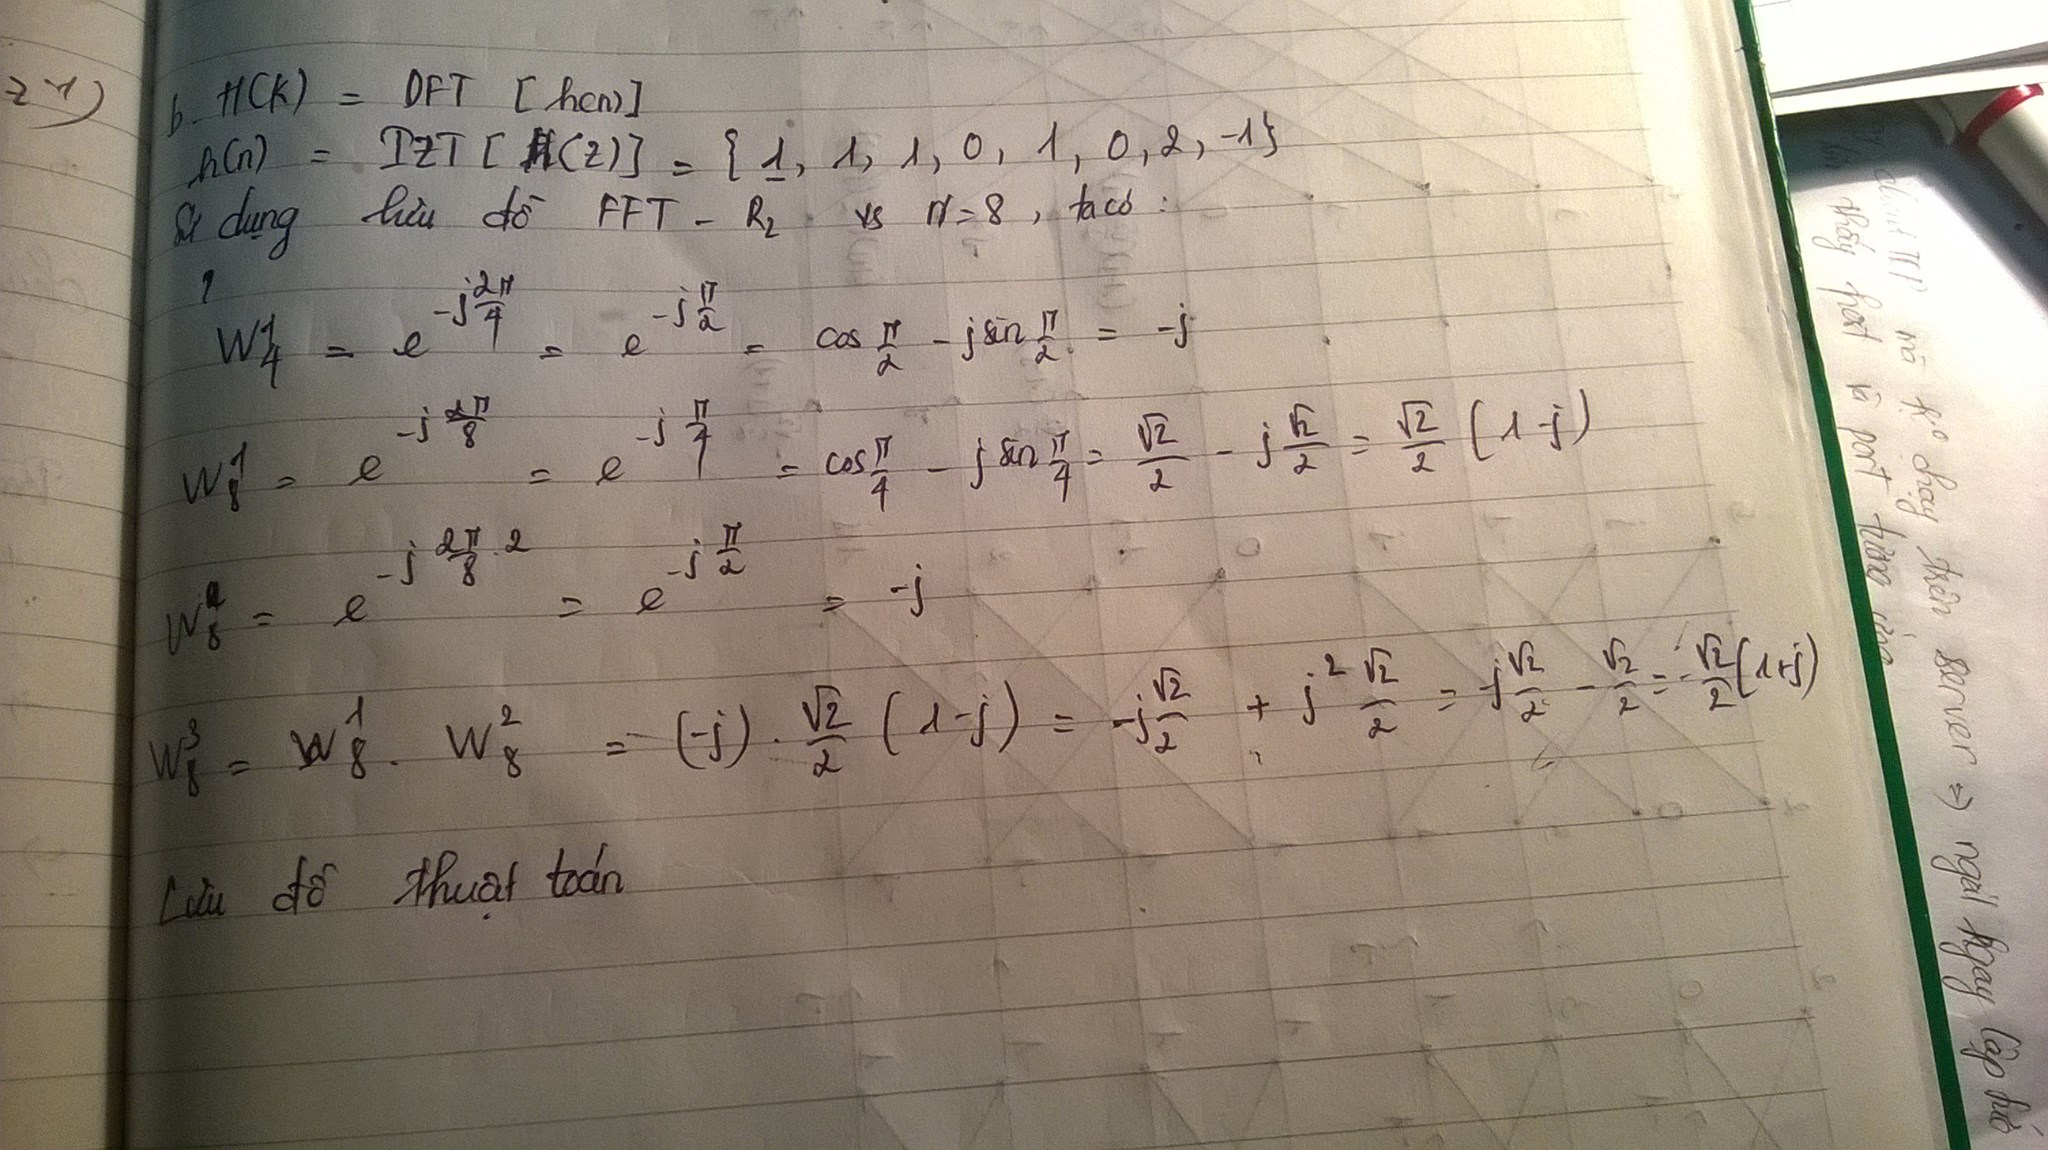 ≥1)
b. H(K) = DFT [h(n)]
h(n) = IZT [H(z)] = {1, 1, 1, 0, 1, 0, 2, -1}
Sử dụng lưu đồ FFT - R₂ vs N=8, ta có:
W₄¹ = e^(-j2π/4) = e^(-jπ/2) = cos π/2 - jsin π/2 = -j
W₈¹ = e^(-j2π/8) = e^(-jπ/4) = cos π/4 - jsin π/4 = √2/2 - j√2/2 = √2/2 (1-j)
W₈² = e^(-j2π/8 .2) = e^(-jπ/2) = -j
W₈³ = W₈¹ . W₈² = (-j) . √2/2 (1-j) = -j√2/2 + j² √2/2 = -j√2/2 - √2/2 = -√2/2 (1+j)
Lưu đồ thuật toán
chạy trên server => ngại hay lập
thấy port từng